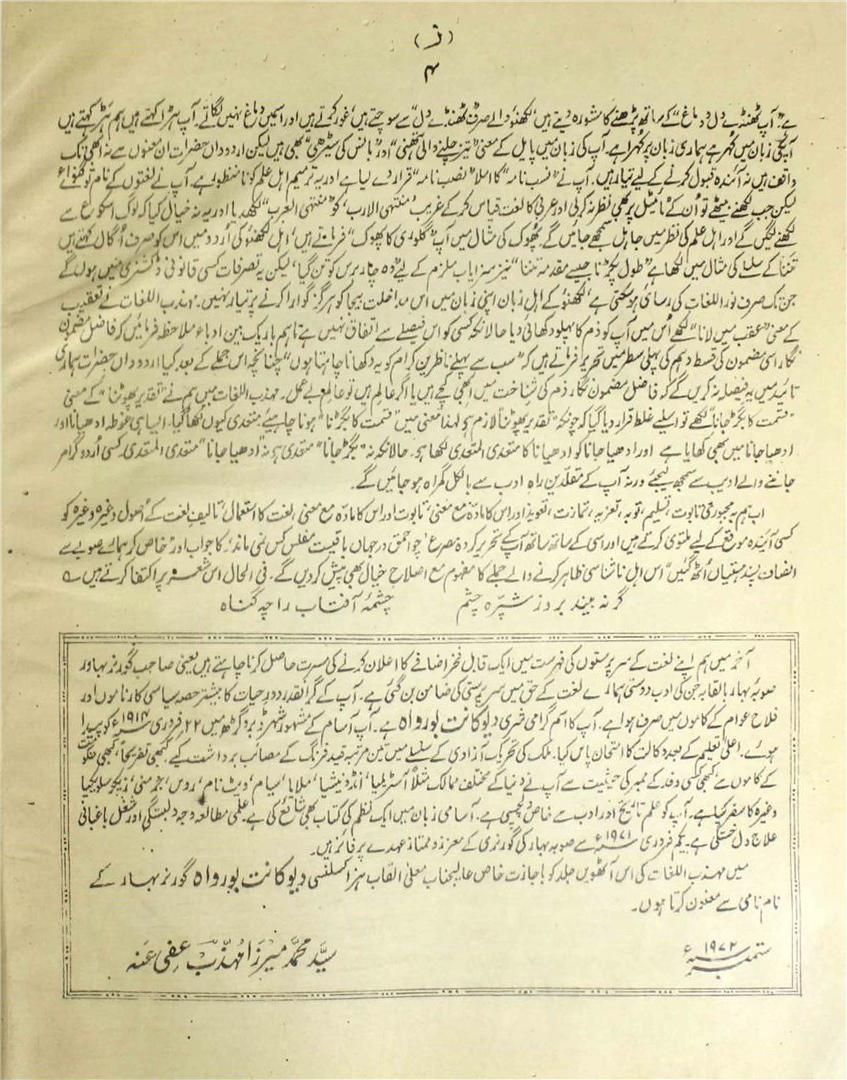 (ز)
۴
ہے"، آپ ٹھنڈے دل و دماغ "کے ساتھ پڑھنے کا مشورہ دیتے ہیں، لکھنؤ والے صرف ٹھنڈے دل" سے سوچتے ہیں، غور کرتے ہیں اور اسمیں دماغ نہیں لگاتے۔ آپ سہرا کہتے ہیں ہم کہتے ہیں
آپکی زبان میں کُہر ہے ہماری زبان پر کُہرا ہے۔ آپ کی زبان میں پایل کے معنی "تیز چلنے والی ہتھنی" اور "بانس کی سیڑھی" بھی ہیں لیکن اردو داں حضرات ان معنوں سے نہ ابھی تک
واقف ہیں نہ آئندہ قبول کرنے کے لیے تیار ہیں۔ آپ نے "نسب نامہ" کا املا "نصب نامہ" قرار دے لیا ہے اور یہ ترمیم اہل علم کو نامنظور ہے۔ آپ نے لغتوں کے نام تو لکھوائے
لیکن جب لکھنے بیٹھے تو اُن کے ٹائیٹل پر بھی نظر نہ کرلی اور عربی کا لغت قیاس کر کے غریب "منتہی الارب" کو "منتہی العرب" لکھدیا اور یہ نہ خیال کیا کہ لوگ اسکو ع سے
لکھنے لگیں گے اور اہل علم کی نظر میں جاہل سمجھے جائیں گے۔ پھوک کی مثال میں آپ "گلوری کا پھوک" فرماتے ہیں، اہل لکھنؤ کی اُردو میں اس کو صرف اُگال کہتے ہیں
تننا کے سلسلے کی مثال میں لکھا ہے "طول پکڑنا جیسے مقدمہ تننا" نیز سزایاب ملزم کے لیے "وہ چار برس کو تن گیا"، لیکن یہ تصرفات کسی قانونی ڈکشنری میں ہوں گے
جن تک صرف نور اللغات کی رسائی ہو سکتی ہے، لکھنؤ کے اہل زبان اپنی زبان میں اس مداخلت بیجا کو ہرگز گوارا کرنے پر تیار نہیں۔ مہذب اللغات نے تعقیب
کے معنی "عقب میں لانا" لکھے اُس میں آپ کو ذم کا پہلو دکھائی دیا حالانکہ کسی کو اس فیصلے سے اتفاق نہیں ہے تاہم باریک بین ادباء ملاحظہ فرمائیں کہ فاضل مضمون
نگار اسی مضمون کی قسط دہم کی پہلی سطر میں تحریر فرماتے ہیں کہ "سب سے پہلے ناظرین کرام کو یہ دکھانا چاہتا ہوں" چنانچہ اس جملے کے بعد کیا اردو داں حضرات ہماری
تائید میں یہ فیصلہ نہ کریں گے کہ فاضل مضمون نگار ذم کی شناخت میں ابھی کچے ہیں یا اگر عالم ہیں تو عالم بے عمل۔ مہذب اللغات میں ہم نے "تقدیر پھوٹنا" کے معنی
"قسمت کا بگڑ جانا" لکھے تو اسلیے غلط قرار دیا گیا کہ چونکہ "تقدیر پھوٹنا" لازم ہے لہذا معنی میں "قسمت کا بگڑنا" ہونا چاہیئے متعدی کیوں لکھا گیا۔ ایسا ہی غوطہ ادھیانا اور
ادھیا جانا میں بھی کھایا ہے اور ادھیا جانا کو ادھیانا کا متعدی المتعدی لکھا ہے۔ حالانکہ نہ "بگڑ جانا" متعدی ہے نہ "ادھیا جانا" متعدی المتعدی۔ کسی اُردو گرامر
جاننے والے ادیب سے سمجھ لیجئے ورنہ آپ کے مقلدین راہِ ادب سے بالکل گمراہ ہو جائیں گے۔
اب ہم بہ مجبوری تابوت، تسلیم، توبہ، تعزیہ، تمازت، تعویذ اور اس کا مادّہ مع معنی، تابوت اور اس کا مادّہ مع معنی، لغت کا استعمال، تالیفِ لغت کے اُصول وغیرہ وغیرہ کو
کسی آئندہ موقع کے لیے ملتوی کرتے ہیں اور اسی کے ساتھ ساتھ آپ کے تحریر کردہ مصرع "چو احمق در جہاں باقیست مفلس کس نمی ماند" کا جواب اور خاص کر ہمارے صوبے سے
انصاف پسند ہستیاں اُٹھ گئیں" اس اہل ناشناسی ظاہر کرنے والے جملے کا مفہوم مع اصلاح خیال بھی پیش کر دیں گے۔ فی الحال اس شعر پر اکتفا کرتے ہیں ؎
گر نہ بیند بروز شپرہ چشم     چشمۂ آفتاب را چہ گناہ
آخر میں ہم اپنے لغت کے سرپرستوں کی فہرست میں ایک قابل فخر اضافے کا اعلان کرنے کی مسرت حاصل کرنا چاہتے ہیں یعنی صاحب گورنر بہادر
صوبۂ بہار بالقابہ جن کی ادب دوستی ہمارے لغت کے حق میں سرپرستی کی ضامن بن گئی ہے۔ آپ کے گرانقدر دورِ حیات کا بیشتر حصہ سیاسی کارناموں اور
فلاح عوام کے کاموں میں صرف ہوا ہے۔ آپ کا اسم گرامی شری دیوکانت بورواہ ہے۔ آپ آسام کے مشہور شہر ڈبروگڑھ میں ۲۲ فروری ۱۹۱۴ء کو پیدا
ہوئے۔ اعلیٰ تعلیم کے بعد وکالت کا امتحان پاس کیا۔ ملک کی تحریک آزادی کے سلسلے میں تین مرتبہ قید فرنگ کے مصائب برداشت کیے۔ کبھی تفریحاً، کبھی حکومت
کے کاموں سے، کبھی کسی وفد کے ممبر کی حیثیت سے آپ نے دنیا کے مختلف ممالک مثلاً آسٹریلیا، انڈونیشیا، ملایا، سیام، ویٹ نام، روس، جرمنی، زیکوسلویکیا
وغیرہ کا سفر کیا ہے۔ آپ کو علم تاریخ اور ادب سے خاص دلچسپی ہے۔ آسامی زبان میں ایک نظم کی کتاب بھی شائع کی ہے۔ علمی مطالعہ وجہ دلبستگی اور شغل باغبانی
علاج دل خستگی ہے۔ یکم فروری ۱۹۷۱ء سے صوبہ بہار کی گورنری کے معزز و ممتاز عہدے پر فائز ہیں۔
میں مہذب اللغات کی اس آٹھویں جلد کو باجازت خاص عالیجناب معلیٰ القاب ہز اکسلنسی دیوکانت بورواہ گورنر بہار کے
نام نامی سے معنون کرتا ہوں۔
ستمبر ۱۹۷۲ء     سیّد محمد میرزا مہذّب عفی عنہ